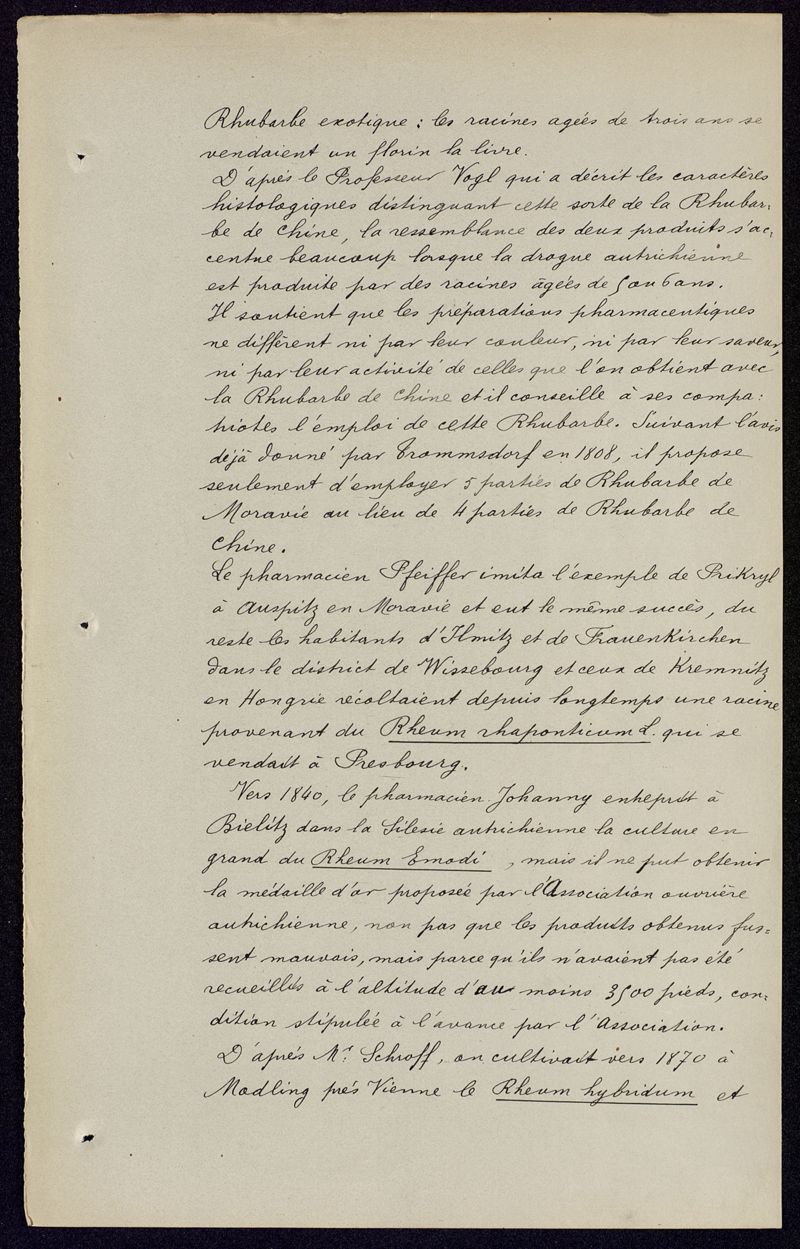 Rhubarbe exotique : les racines ageés de trois ans se
vendaient un florin la livre.
D'aprés le Professeur Vogl qui a décrit les caractères
histologiques distinguant cette sorte de la Rhubar-
be de Chine, la ressemblance des deux produits s'ac-
centue beaucoup lorsque la drogue autrichienne
est produite par des racines ageés de 5 ou 6 ans.
Il soutient que les préparations pharmaceutiques
ne diffèrent ni par leur couleur, ni par leur saveur,
ni par leur activité de celles que l'on obtient avec
la Rhubarbe de Chine et il conseille à ses compa-
triotes l'emploi de cette Rhubarbe. Suivant l'avis
déjà donné par Trommsdorf en 1808, il propose
seulement d'employer 5 parties de Rhubarbe de
Moravie au lieu de 4 parties de Rhubarbe de
Chine.
Le pharmacien Pfeiffer imita l'exemple de Prikryl
à Auspitz en Moravie et eut le même succès, du
reste les habitants d'Ilmitz et de Frauenkirchen
dans le district de Wissebourg et ceux de Kremnitz
en Hongrie récoltaient depuis longtemps une racine
provenant du Rheum rhaponticum L. qui se
vendait à Presbourg.
Vers 1840, le pharmacien Johanny entreprit à
Bielitz dans la Silesie autrichienne la culture en
grand du Rheum Emodi , mais il ne put obtenir
la médaille d'or proposeé par l'Association ouvrière
autrichienne, non pas que les produits obtenus fus-
sent mauvais, mais parce qu'ils n'avaient pas été
recueillis à l'altitude d'au moins 3500 pieds, con-
dition stipuleé à l'avance par l'Association.
D'aprés Mr. Schroff, on cultivait vers 1870 à
Mœdling prés Vienne le Rheum hybridum et